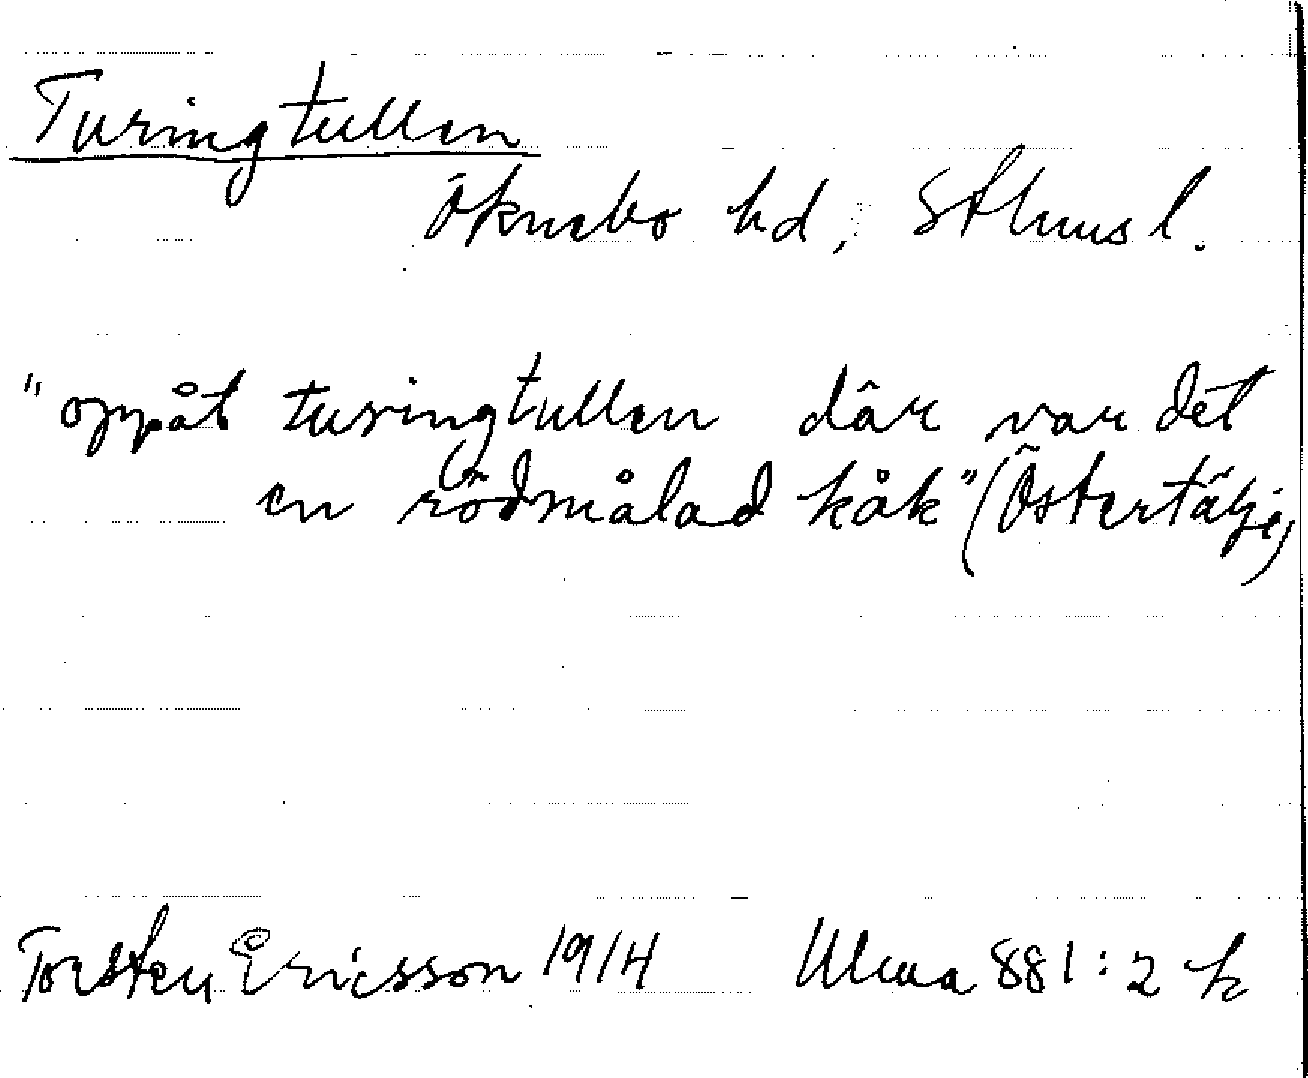 Turingtullen
Öknebo hd, Sthms l.
"oppåt turingtullen där var det
en rödmålad kåk" (Östertälje)
Torsten Ericsson 1914 Ulma 881:2 h